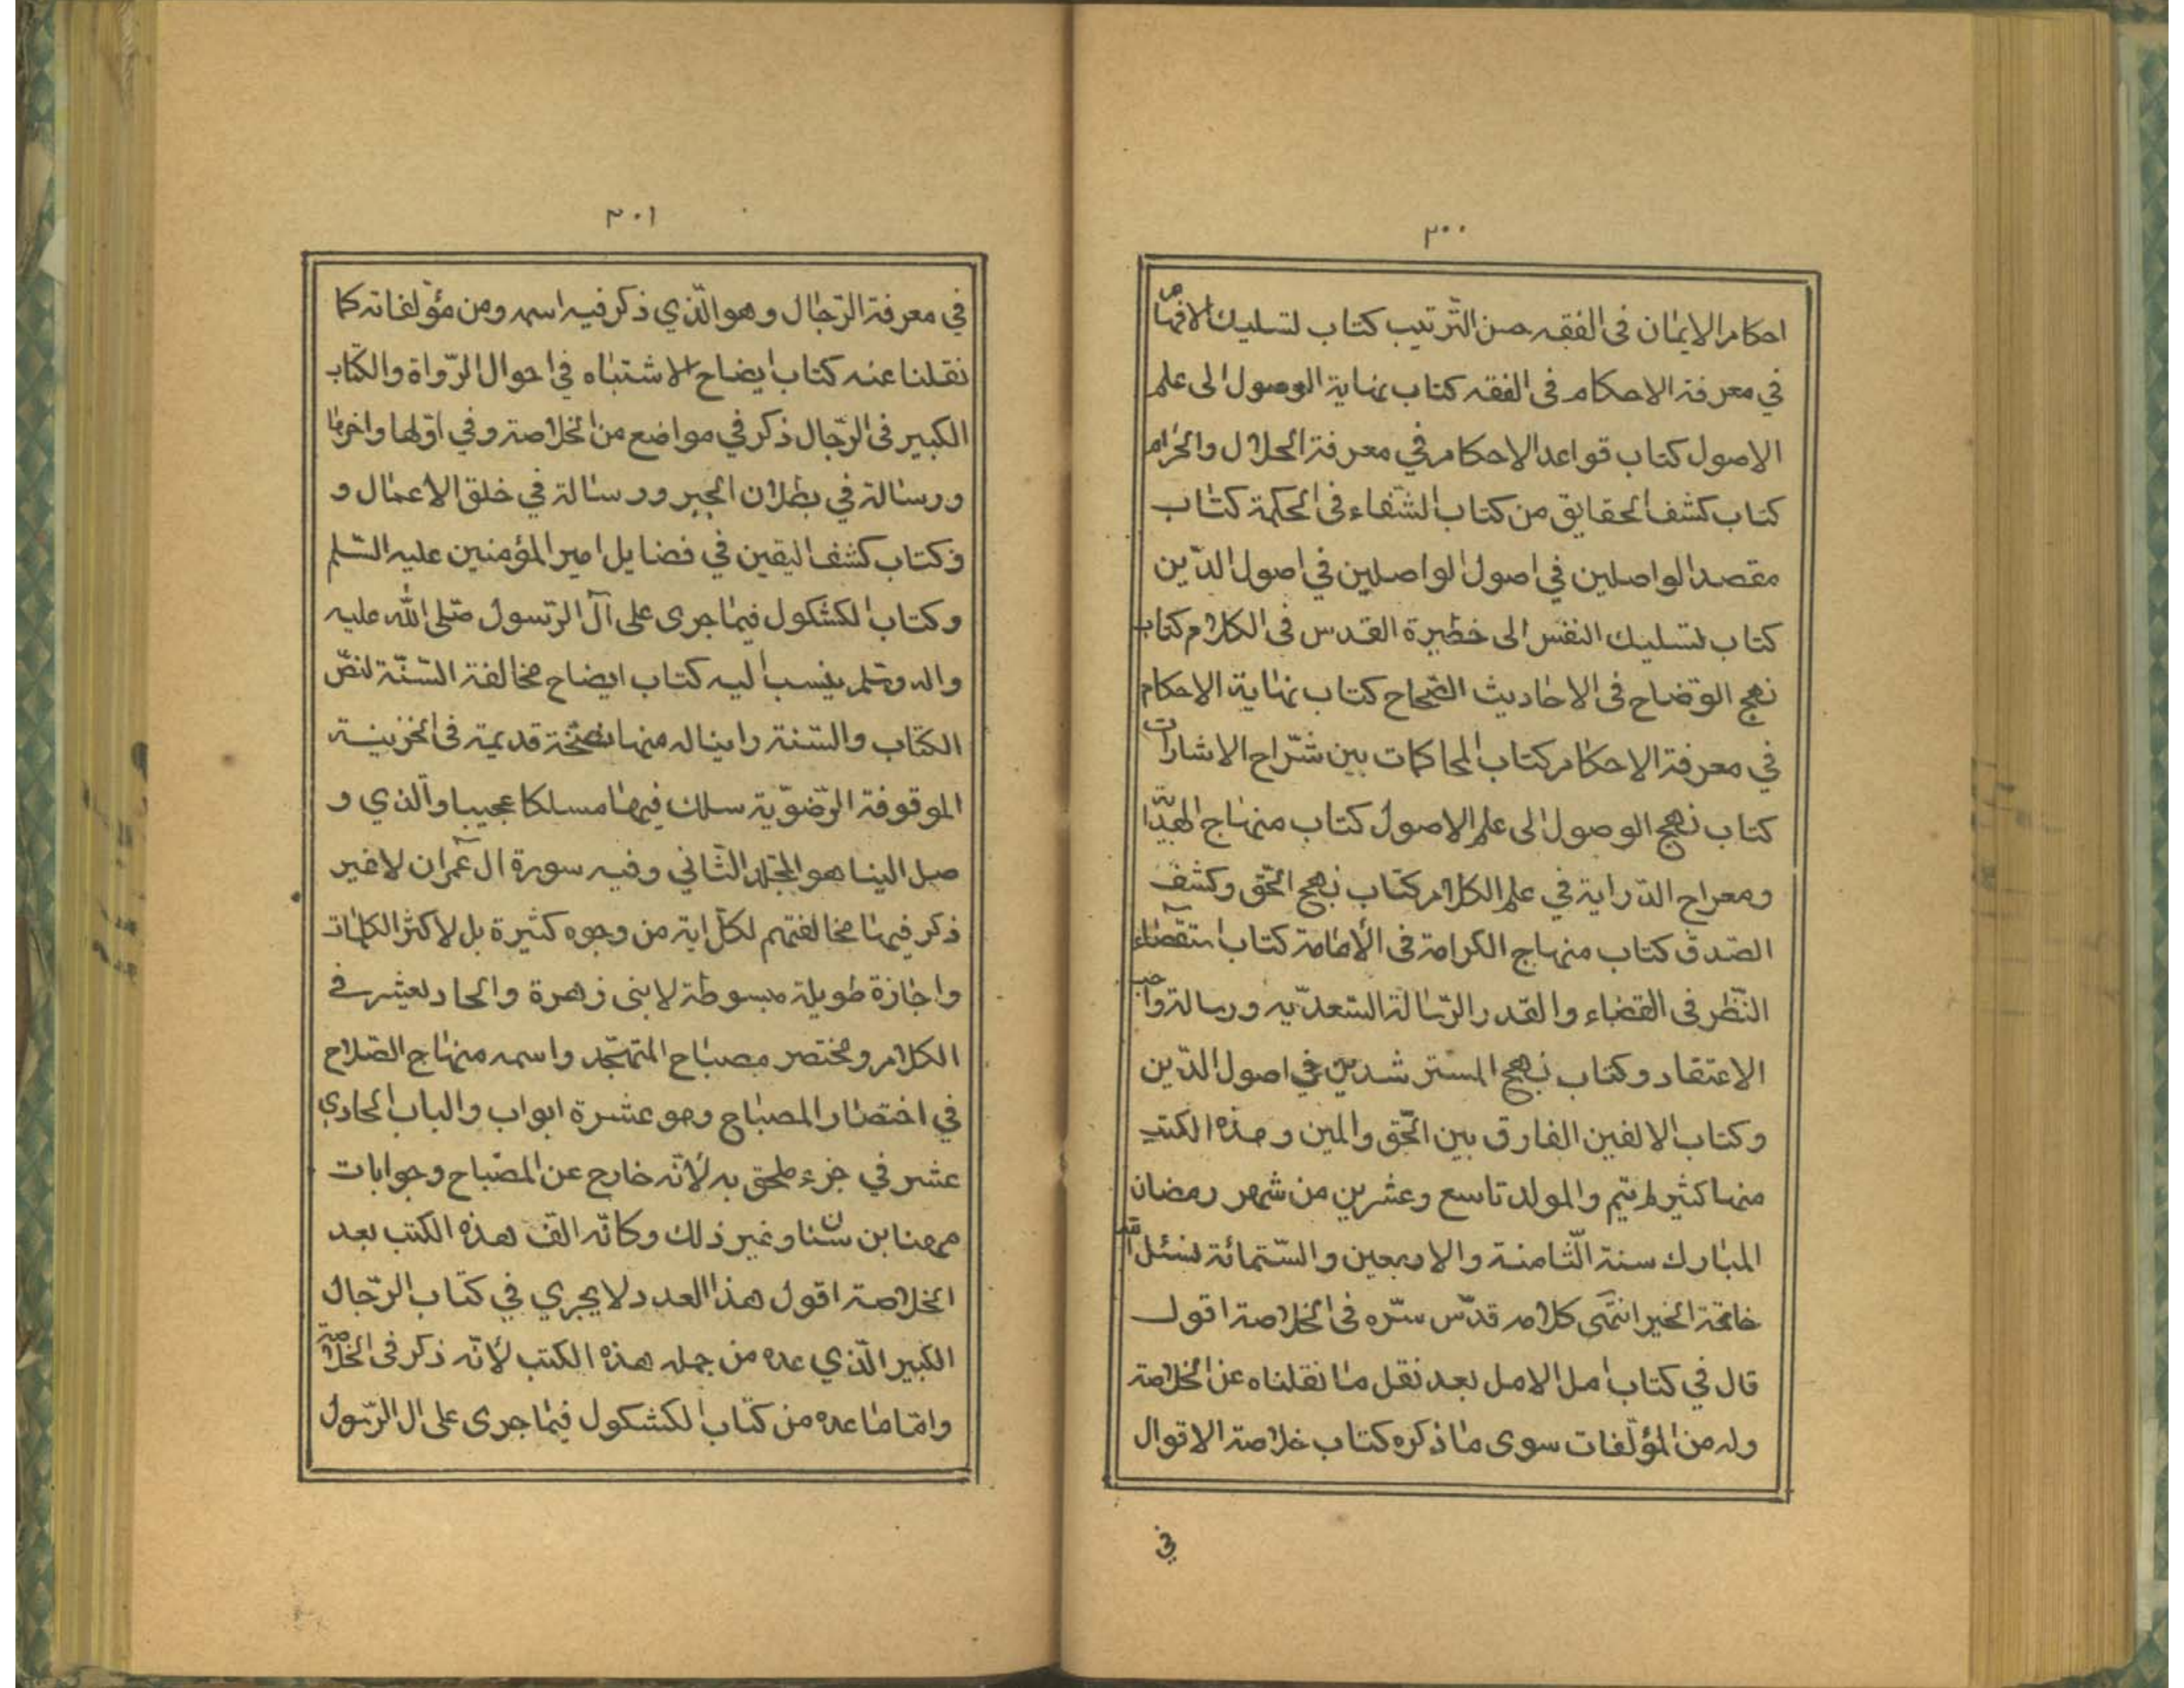 ٣٠٠
احكام الايمان فى الفقه حسن الترتيب كتاب لتسليك الافهام
في معرفة الاحكام فى الفقه كتاب نهاية الوصول الى علم
الاصول كتاب قواعد الاحكام في معرفة الحلال والحرام
كتاب كشف الحقايق من كتاب الشفاء فى الحكمة كتاب
مقصد الواصلين في اصول الواصلين في اصول الدّين
كتاب لتسليك النفس الى خظيرة القدس فى الكلام كتاب
نهج الوضاح فى الاحاديث الصحاح كتاب نهاية الاحكام
في معرفة الاحكام كتاب المحاكمات بين شرّاح الاشارات
كتاب نهج الوصول الى علم الاصول كتاب منهاج الهدّا
ومعراج الدّراية في علم الكلام كتاب نهج الحّق وكشف
الصّدق كتاب منهاج الكرامة فى الأمامة كتاب استقصاء
النّظر فى القضاء والقدر الرّسالة السّعديّه ورسالة واجب
الاعتقاد وكتاب نهج المسترشدين في اصول الدّين
وكتاب الالفين الفارق بين الحّق والمين وهذه الكتب
منها كثير لم يتم والمولد تاسع وعشرين من شهر رمضان
المبارك سنة الّثامنة والاربعين والسّتمائة نسئل الله
خاتمة الخير انتهى كلامه قدّس سّره فى الخلاصة اقول
قال في كتاب امل الامل بعد نقل ما نقلناه عن الخلاصة
وله من المؤلّفات سوى ما ذكره كتاب خلاصة الاقوال
في
٣٠١
في معرفة الرّجال وهو الّذي ذكر فيه اسمه ومن مؤلفاته كما
نقلنا عنه كتاب ايضاح الاشتباه في احوال الرّواة والكتاب
الكبير فى الرّجال ذكر في مواضع من الخلاصة وفي اوّلها واخرها
ورسالة في بطلان الجبر ورسالة في خلق الاعمال و
وكتاب كشف اليقين في فضايل امير المؤمنين عليه السّلم
وكتاب الكشكول فيما جرى على آل الرّسول صّلى الله عليه
واله وسّلم ينسب اليه كتاب ايضاح مخالفة السّنّة لنصّ
الكتاب والسّنة راينا له منها نسخة قديمة فى الخزينة
الموقوفة الرّضوّية سلك فيها مسلكا عجيبا والّذي و
صل الينا هو المجّلد الثّاني وفيه سورة ال عمران لاغير
ذكر فيها مخالفتهم لكلّ اية من وجوه كثيرة بل لاكثر الكلمات
واجازة طويلة مبسوطة لابنى زهرة والحاد لعشر في
الكلام ومختصر مصباح المتهجّد واسمه منهاج الصّلاح
في اختصار المصباح وهو عشرة ابواب والباب الحادي
عشر في جزء ملحق به لأنّه خارج عن المصباح وجوابات
مهنا بن سنان وغير ذلك وكانّه الف هذه الكتب بعد
الخلاصة اقول هذا العدد لا يجري في كتاب الرّجال
الكبير الّذي عده من جمله هذه الكتب لأنّه ذكر فى الخلاصة
وامّا ما عده من كتاب الكشكول فيما جرى على ال الرّسول